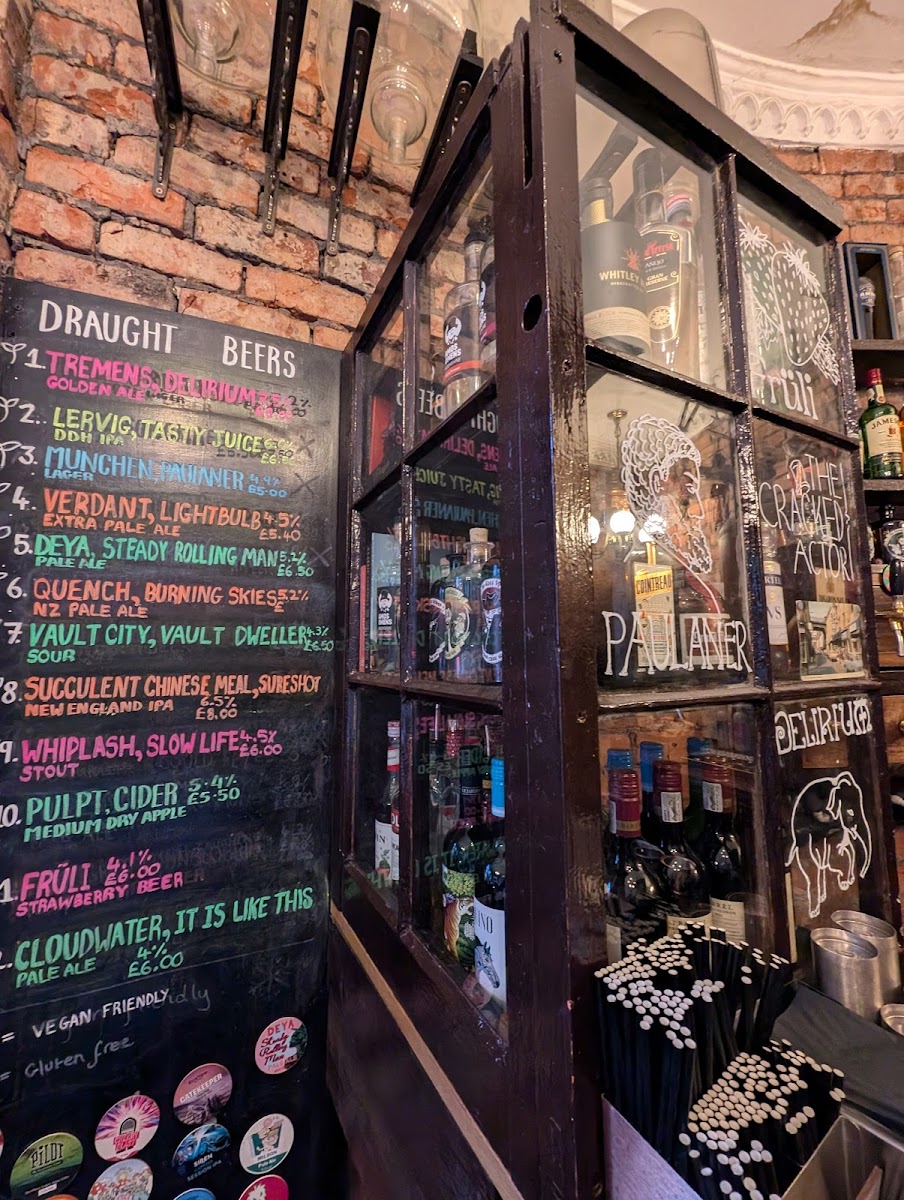 DRAUGHT BEERS
1. TREMENS, DELIRIUM
GOLDEN ALE
2. LERVIG, TASTY JUICE
DDH IPA
3. MUNCHEN, PAULANER 4.9%
LAGER £5.00
4. VERDANT, LIGHTBULB 4.5%
EXTRA PALE ALE £5.40
5. DEYA, STEADY ROLLING MAN 5.2%
PALE ALE £6.50
6. QUENCH, BURNING SKIES 5.2%
NZ PALE ALE
7. VAULT CITY, VAULT DWELLER 4.3%
SOUR £6.50
8. SUCCULENT CHINESE MEAL, SURESHOT
NEW ENGLAND IPA 6.5%
£8.00
9. WHIPLASH, SLOW LIFE 4.5%
STOUT £6.00
10. PULPT, CIDER 5.4%
MEDIUM DRY APPLE £5.50
1. FRÜLI 4.1%
STRAWBERRY BEER £6.00
CLOUDWATER, IT IS LIKE THIS
PALE ALE 4%
£6.00
= VEGAN FRIENDLY
= Gluten free
DEYA
Steady
Rolling
Man
GATEKEEPER
PILOT
SIREN
SESSION IPA
WHITLEY
AÑEJO
GRAN
früli
JAMES
THE
CRACKED
ACTOR
COINTREAU
PAULANER
DELIRIUM